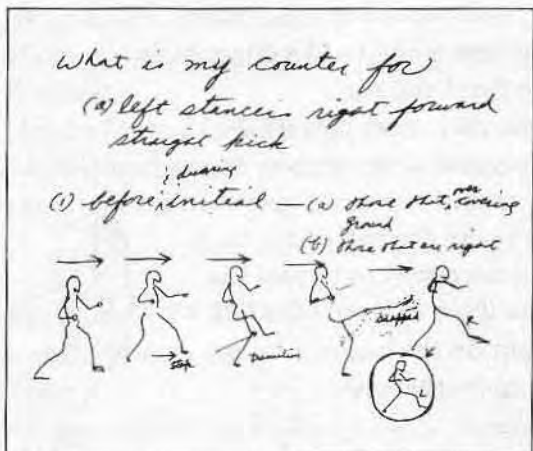 What is my counter for
(a) left stancers right forward
straight kick
& during
(1) before, initial — (a) those that, over covering
ground
(b) those that are right
Step
Transition
Dropped
L